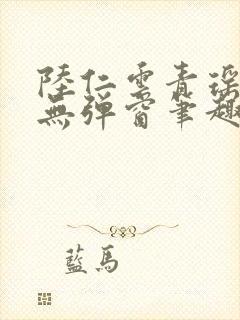 陸仁雲青瑤
無彈窗筆趣
藍馬